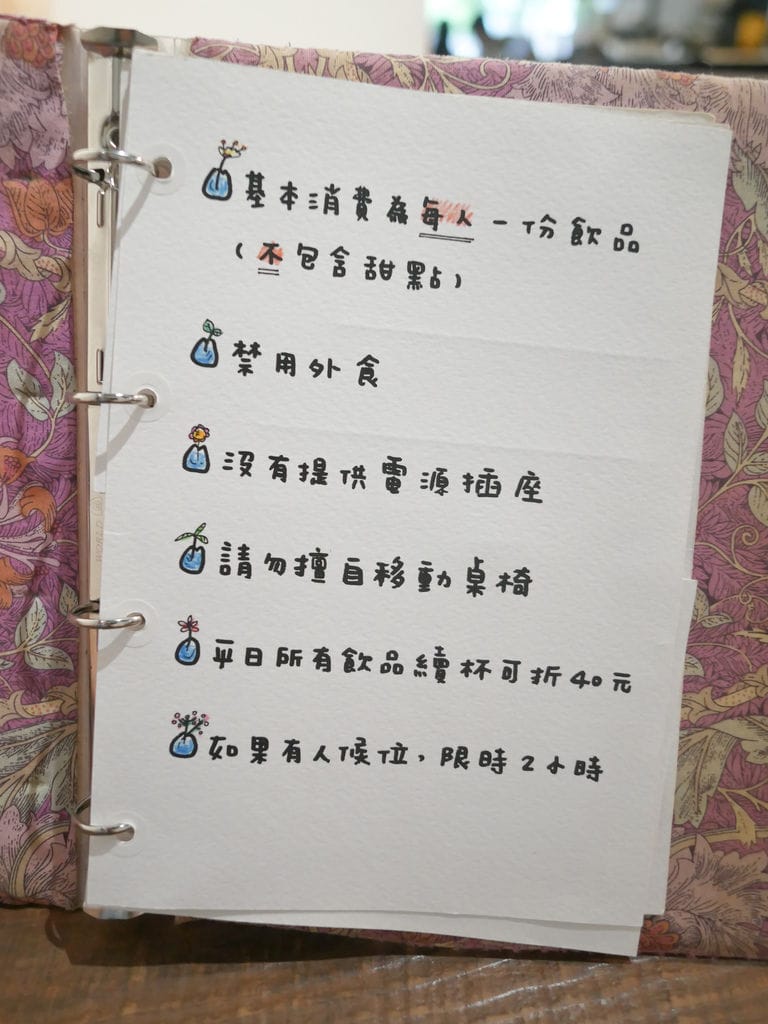 基本消費為每人一份飲品
(不包含甜點)
禁用外食
沒有提供電源插座
請勿擅自移動桌椅
平日所有飲品續杯可折40元
如果有人候位，限時2小時